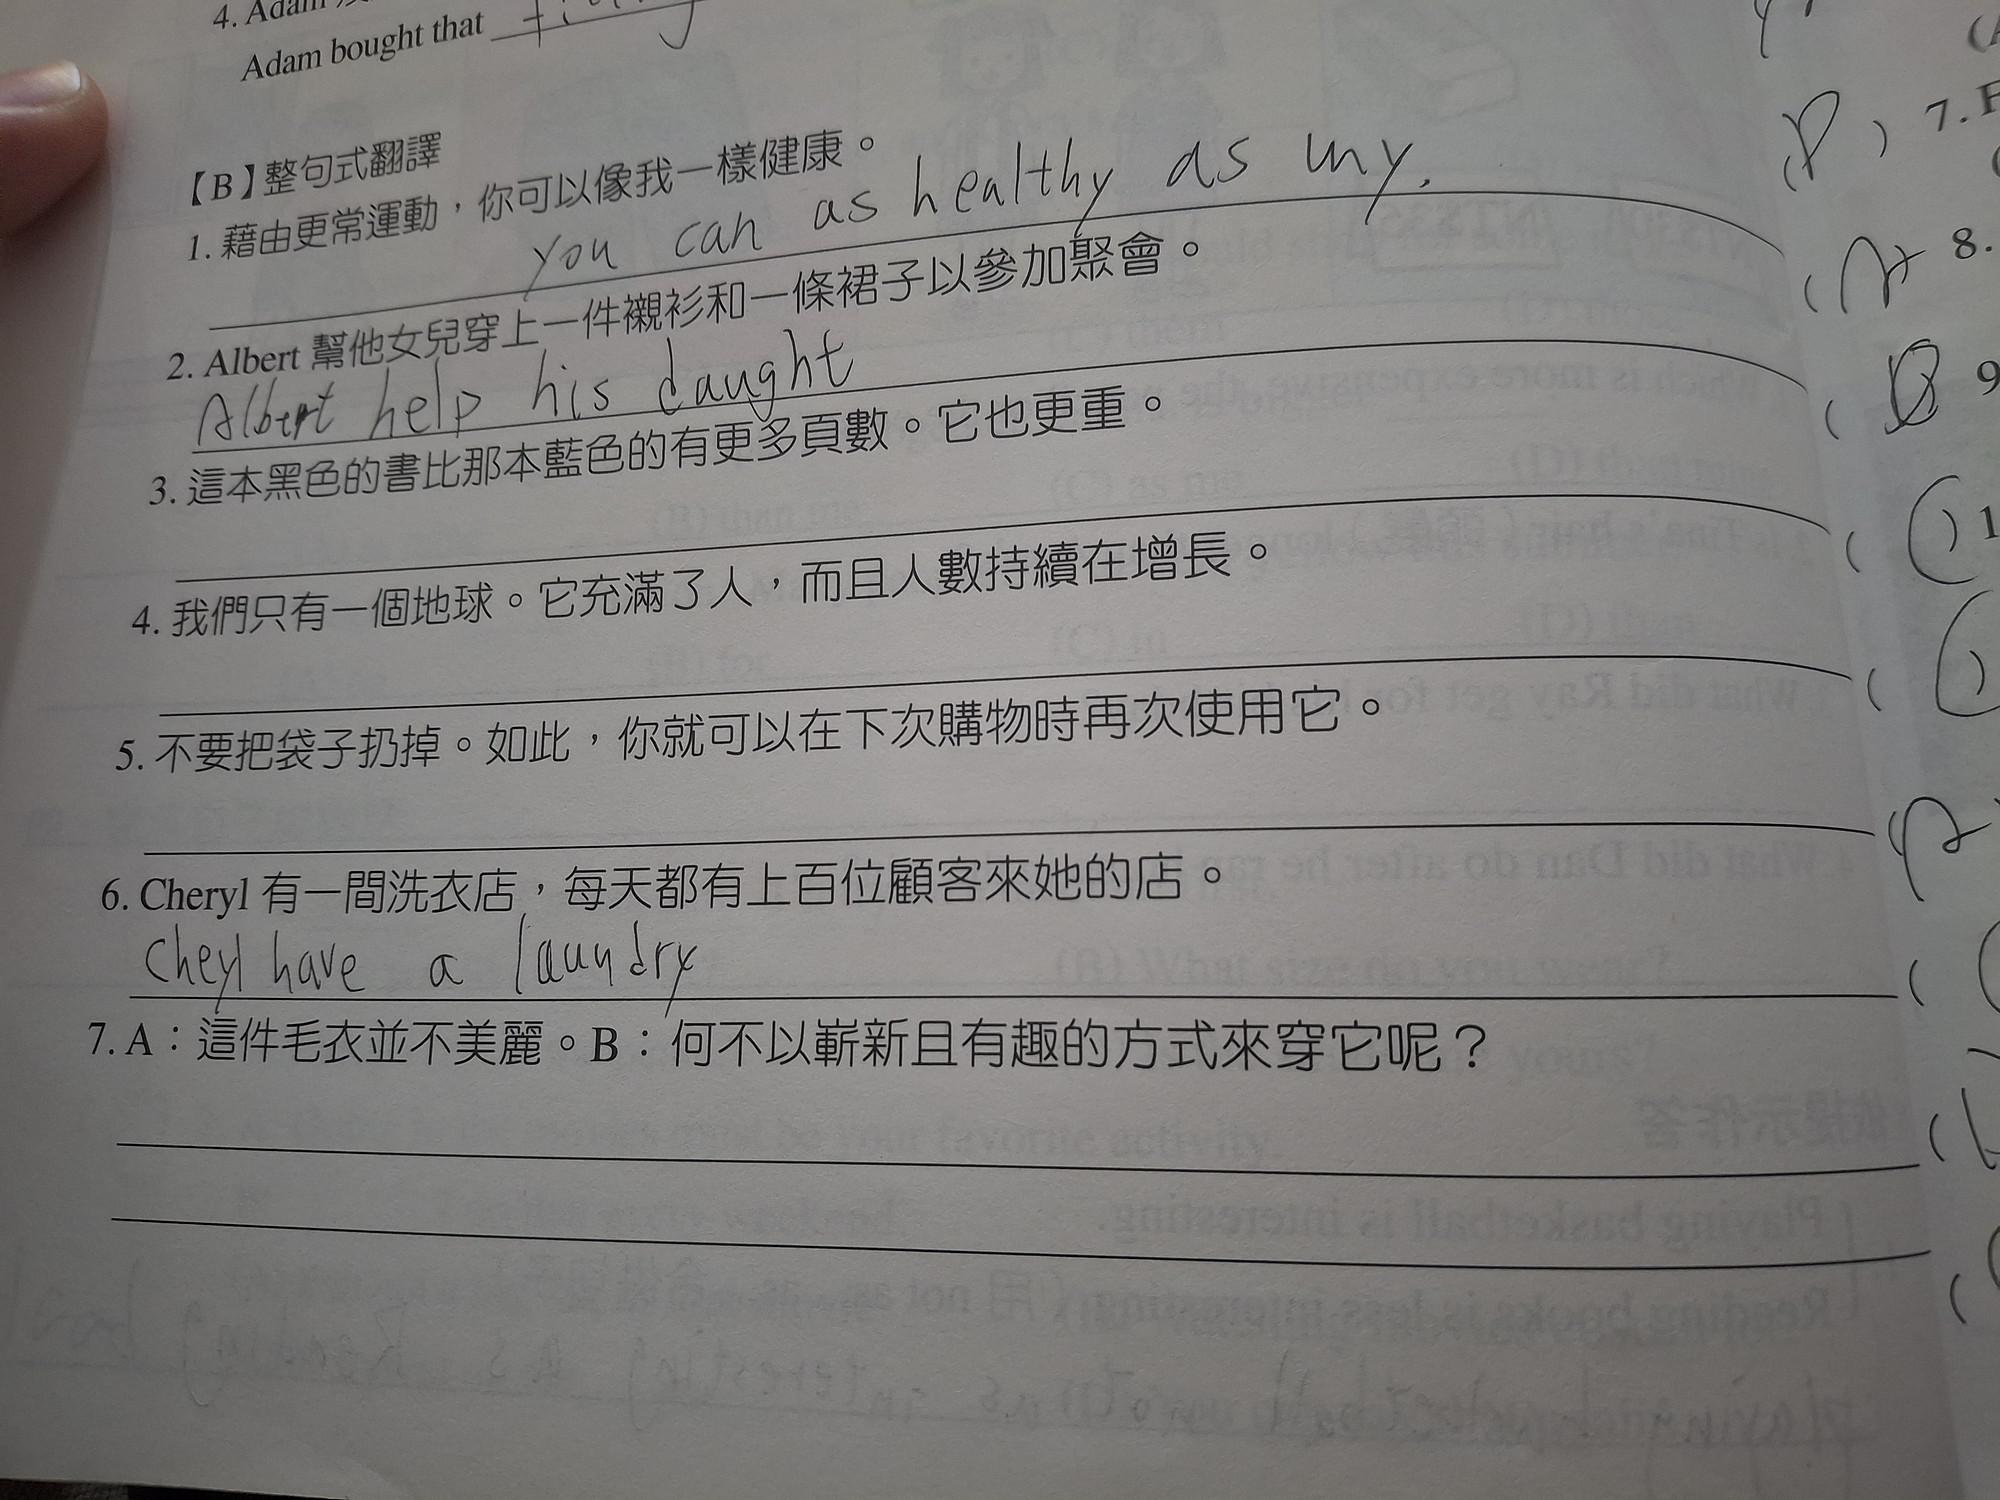 4. Adam
Adam bought that
【B】整句式翻譯
1. 藉由更常運動，你可以像我一樣健康。
you can as healthy as my.
2. Albert 幫他女兒穿上一件襯衫和一條裙子以參加聚會。
Albert help his daught
3. 這本黑色的書比那本藍色的有更多頁數。它也更重。
4. 我們只有一個地球。它充滿了人，而且人數持續在增長。
5. 不要把袋子扔掉。如此，你就可以在下次購物時再次使用它。
6. Cheryl 有一間洗衣店，每天都有上百位顧客來她的店。
Cheyl have a laundry
7. A：這件毛衣並不美麗。B：何不以嶄新且有趣的方式來穿它呢？
7.
8.
9